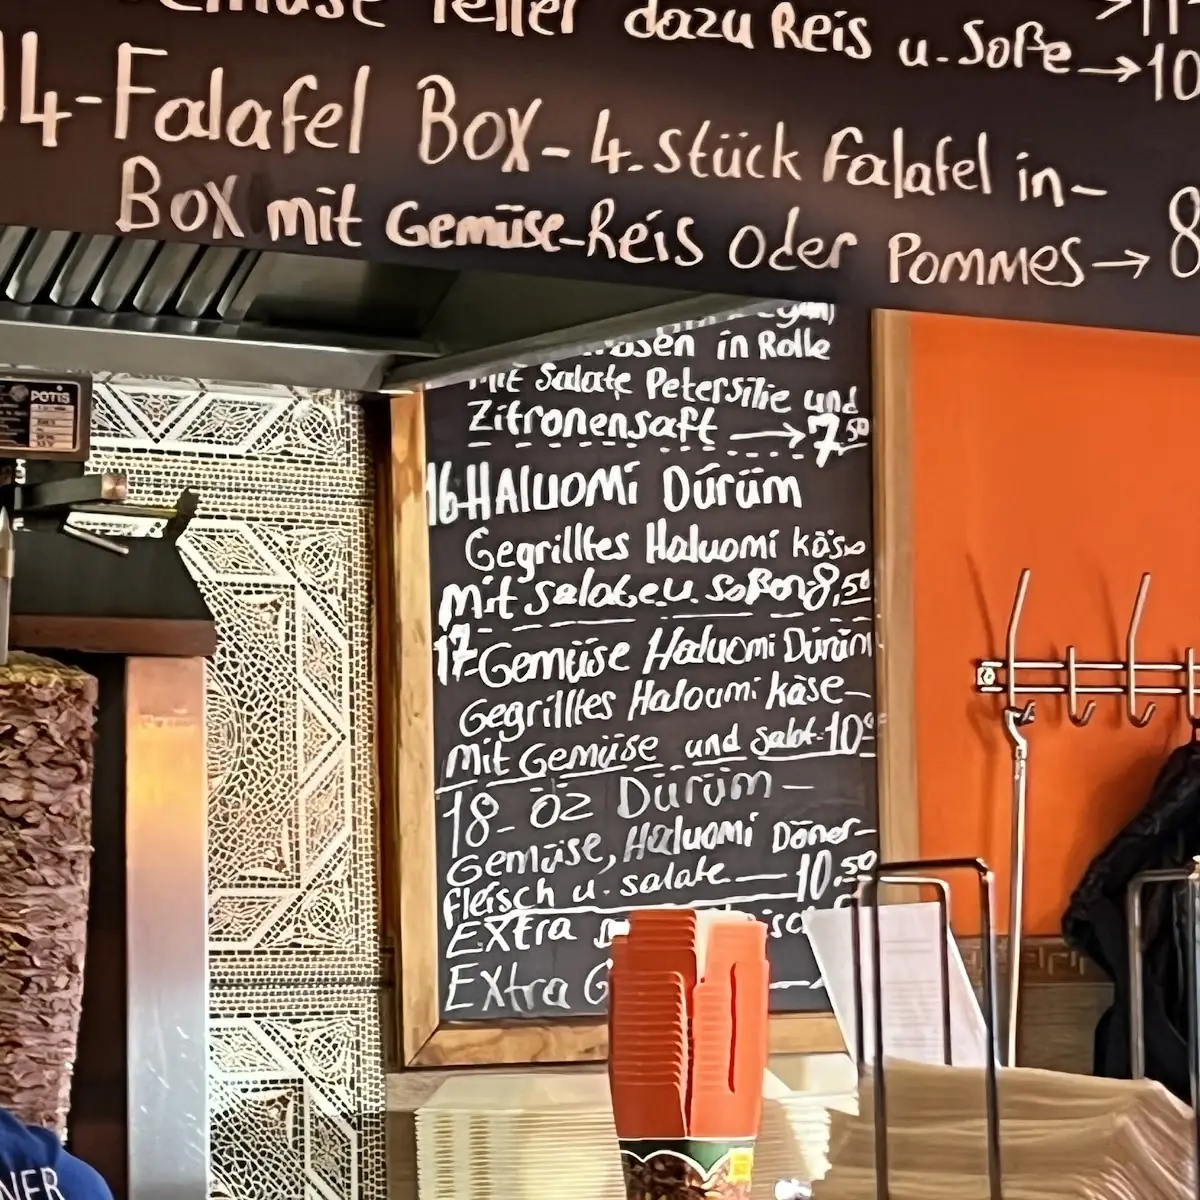 Teller dazu Reis u. Soße → 10
14-Falafel Box - 4. Stück Falafel in-
Box mit Gemüse-Reis oder Pommes → 8
in Rolle
mit Salate Petersilie und
Zitronensaft → 7,50
16 HALUOMI DÜRÜM
Gegrilltes Haluomi käse
mit Salate u. Soßen 8,50
17-Gemüse Haluomi Dürüm
Gegrilltes Haloumi käse-
mit Gemüse und Salat-10
18- ÖZ Dürüm -
Gemüse, Haluomi Döner-
fleisch u. salate — 10.50
Extra
Extra
POTIS